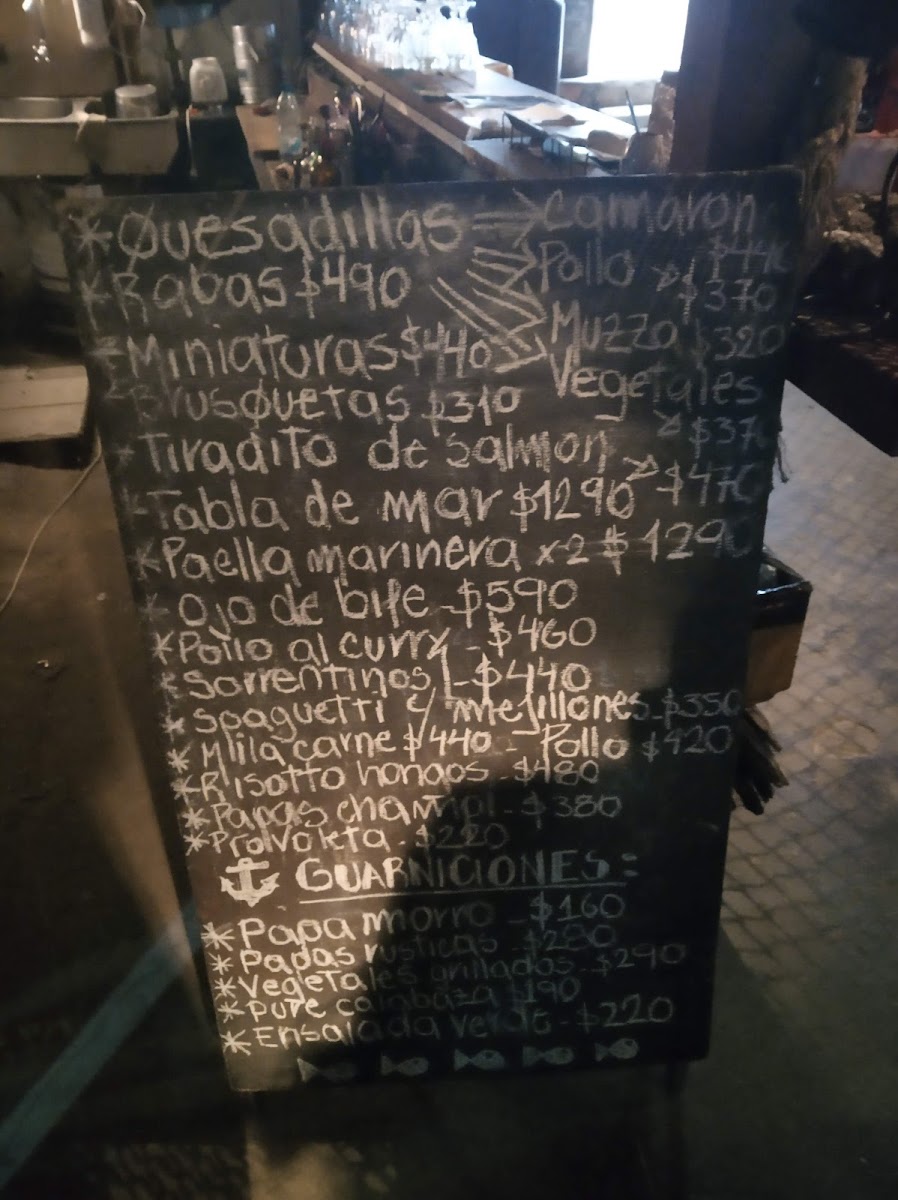 * Quesadillas → Camaron
$440
→ Pollo → $370
→ Muzzo $320
→ Vegetales
→ $370
* Rabas $490
* Miniaturas $440
* Brusquetas $310
* Tiradito de Salmon → $470
* Tabla de mar $1290
* Paella marinera x2 $1290
* Ojo de bife - $590
* Pollo al curry - $460
* Sorrentinos - $440
* Spaguetti c/ mejillones - $350
* Mila carne $440 - Pollo $420
* Risotto hongos - $480
* Papas champi - $380
* Provoleta - $220
GUARNICIONES:
* Papa morro - $160
* Papas rusticas - $280
* Vegetales grillados - $290
* Pure calabaza $190
* Ensalada verde - $220